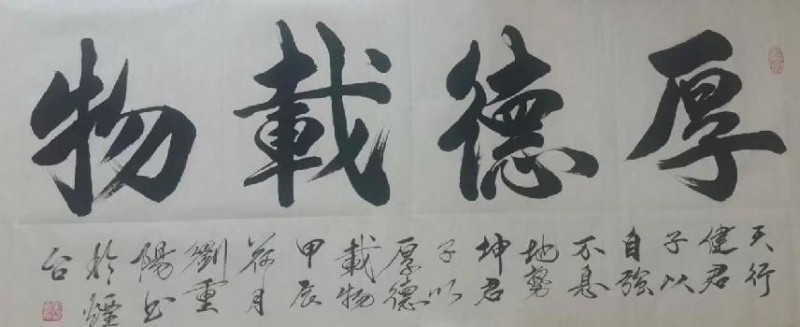 厚德載物
天行
健君
子以
自強
不息
地勢
坤君
子以
厚德
載物
甲辰
荷月
劉重
陽书
於煙
台